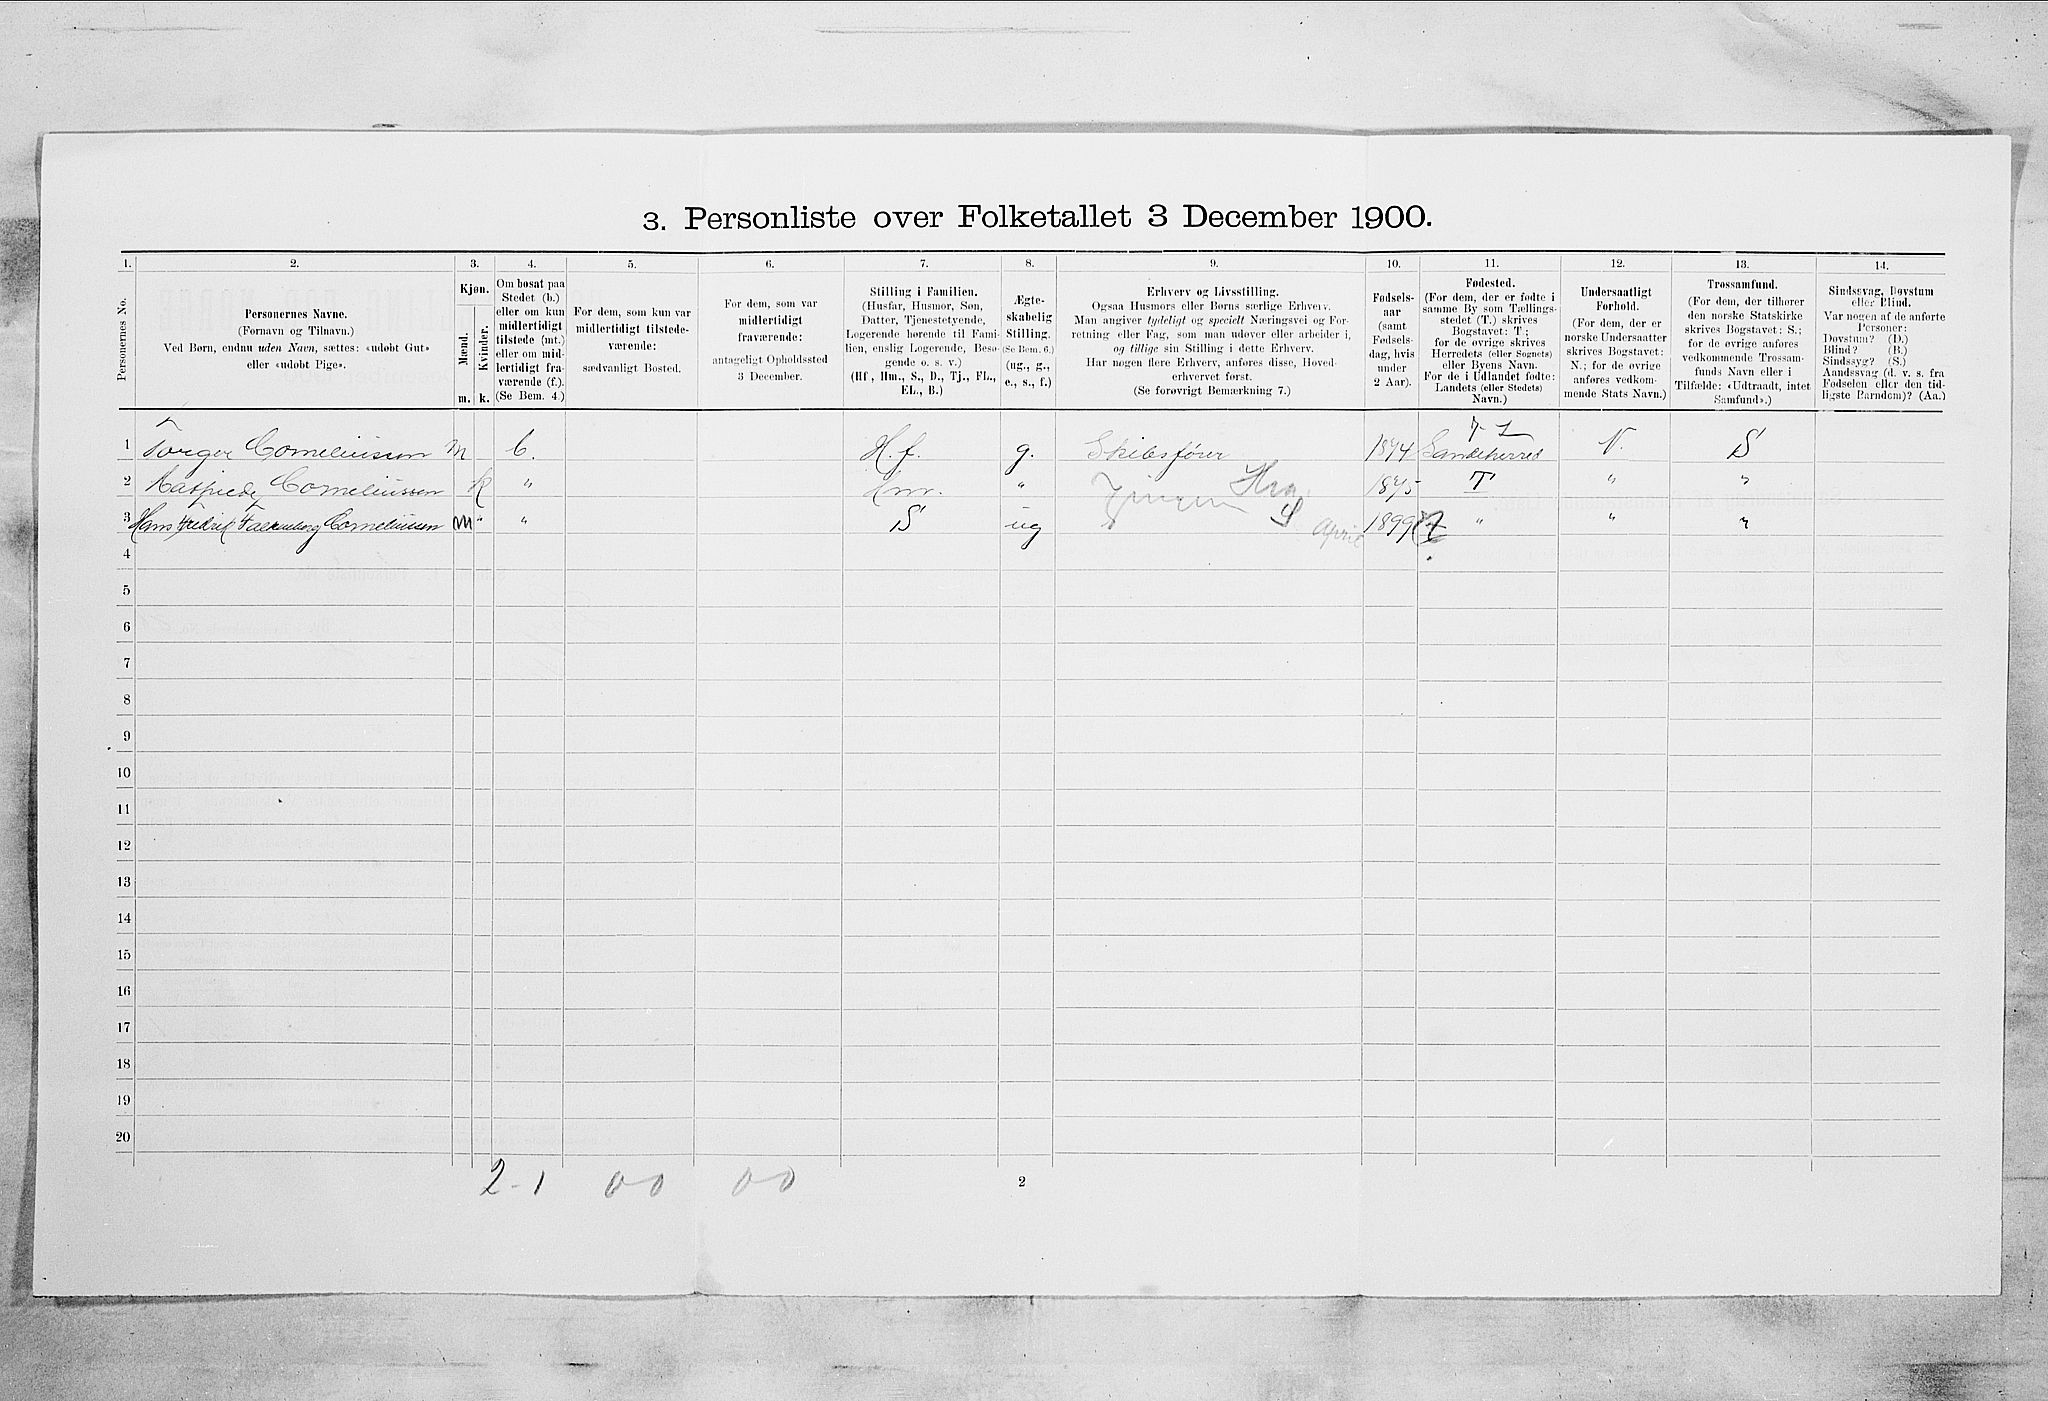 3. Personliste over Folketallet 3 December 1900.
1. 2. 3. 4. 5. 6. 7. 8. 9. 10. 11. 12. 13. 14.
Personernes No.
Personernes Navne.
(Fornavn og Tilnavn.)
Ved Børn, endnu uden Navn, sættes: «udøbt Gut»
eller «udøbt Pige».
Kjøn.
Mænd.
Kvinder.
m. k.
Om bosat paa
Stedet (b.)
eller om kun
midlertidigt
tilstede (mt.)
eller om mid-
lertidigt fra-
værende (f.).
(Se Bem. 4.)
For dem, som kun var
midlertidigt tilstede-
værende:
sædvanligt Bosted.
For dem, som var
midlertidigt
fraværende:
antageligt Opholdssted
3 December.
Stilling i Familien.
(Husfar, Husmor, Søn,
Datter, Tjenestetyende,
Logerende hørende til Fami-
lien, enslig Logerende, Besø-
gende o. s. v.)
(Hf, Hm., S., D., Tj., FL.,
EL., B.)
Ægte-
skabelig
Stilling.
(Se Bem. 6.)
(ug., g.,
e., s., f.)
Erhverv og Livsstilling.
Ogsaa Husmors eller Børns særlige Erhverv.
Man angiver tydeligt og specielt Næringsvei og For-
retning eller Fag, som man udøver eller arbeider i,
og tillige sin Stilling i dette Erhverv.
Har nogen flere Erhverv, anføres disse, Hoved-
erhvervet først.
(Se forøvrigt Bemærkning 7.)
Fødsels-
aar
(samt
Fødsels-
dag, hvis
under
2 Aar).
Fødested.
(For dem, der er fødte i
samme By som Tællings-
stedet (T.) skrives
Bogstavet: T;
for de øvrige skrives
Herredets (eller Sognets)
eller Byens Navn.
For de i Udlandet fødte:
Landets (eller Stedets)
Navn.)
Undersaatligt
Forhold.
(For dem, der er
norske Undersaatter
skrives Bogstavet:
N.; for de øvrige
anføres vedkom-
mende Stats Navn.)
Trossamfund.
(For dem, der tilhører
den norske Statskirke
skrives Bogstavet: S.;
for de øvrige anføres
vedkommende Trossam-
funds Navn eller i
Tilfælde: «Udtraadt, intet
Samfund».)
Sindssvag, Døvstum
eller Blind.
Var nogen af de anførte
Personer:
Døvstum? (D.)
Blind? (B.)
Sindssyg? (S.)
Aandssvag (d. v. s. fra
Fødselen eller den tid-
ligste Barndom)? (Aa.)
1 Torger Corneliussen m b. H. f. g. Skibsfører 1874 Sandeherred N. S
2 Corneliussen K " Hm. " 1875 T " "
3 Hans Fredrik Falkenberg Corneliussen m " " S ug April 1899 " " "
4
5
6
7
8
9
10
11
12
13
14
15
16
17
18
19
20
2-1 00 00
2